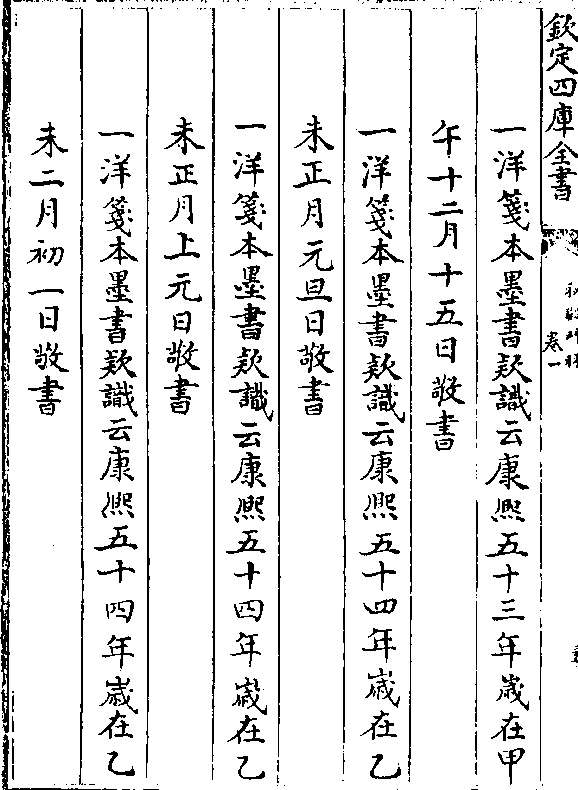 欽定四庫全書
卷一
一洋箋本墨書欵識云康熙五十三年歲在甲
午十二月十五日敬書
一洋箋本墨書欵識云康熙五十四年歲在乙
未正月元旦日敬書
一洋箋本墨書欵識云康熙五十四年歲在乙
未正月上元日敬書
一洋箋本墨書欵識云康熙五十四年歲在乙
未二月初一日敬書